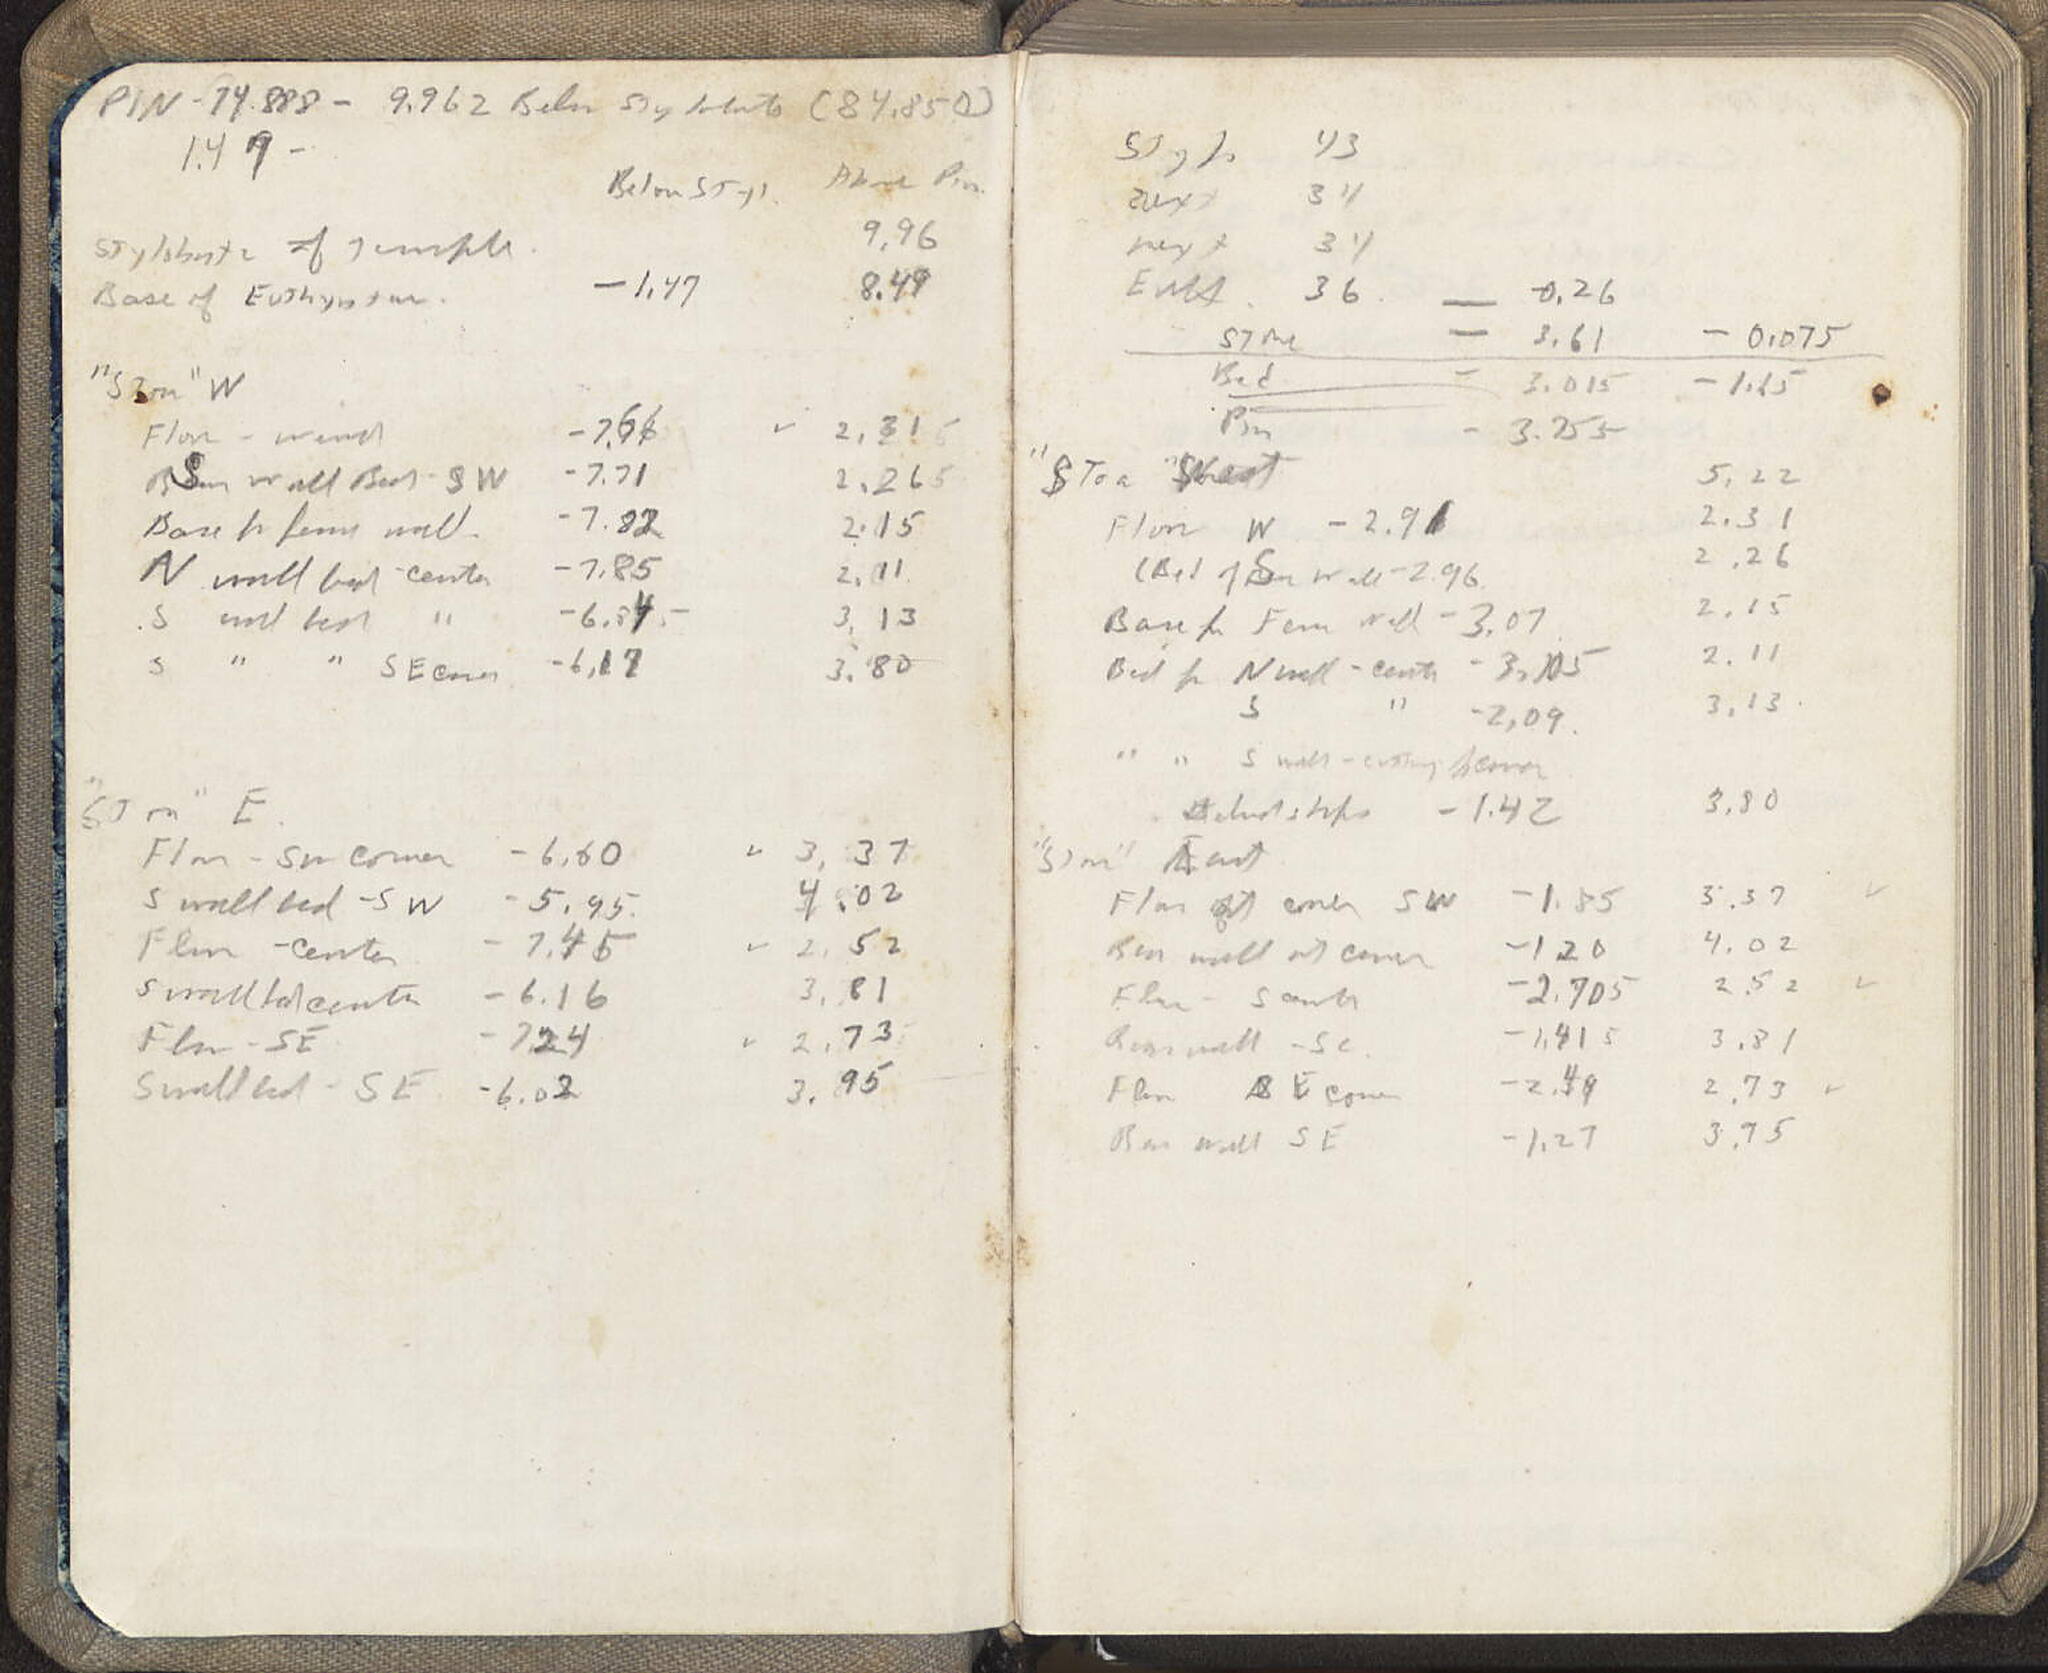 PIN - 74.888 - 9.962 Below Stylobate (84.850)
1.49 -
Below Styl. Above Pin
Stylobate of Temple. 9.96
Base of Euthynteria. -1.47 8.49
"Stoa" W
Floor - -7.66 ✓ 2.315
S wall Bed - SW -7.71 2.265
Base for fence wall. -7.82 2.15
N wall bed - center -7.85 2.11
S wall bed " -6.84 3.13
S " " SE corner -6.17 3.80
"Stoa" E.
Floor - SW corner -6.60 ✓ 3.37
S wall bed - SW -5.95 4.02
Floor - center -7.45 ✓ 2.52
S wall bed center -6.16 3.81
Floor - SE -7.24 ✓ 2.73
S wall bed - SE -6.02 3.95
Stylo 43
next 34
next 34
Euth. 36 — 0.26
Stone — 3.61 - 0.075
Bed - 3.015 - 1.15
Pin - 3.755
"Stoa" West 5.22
Floor W -2.91 2.31
(Bed of S wall -2.96 2.26
Base for Fence wall -3.07 2.15
Bed for N wall - center -3.105 2.11
S " -2.09. 3.13
" " S wall - corner
steps -1.42 3.80
"Stoa" East
Floor at corner SW -1.85 3.37 ✓
Rear wall at corner -1.20 4.02
Floor - S center -2.705 2.52 ✓
Rear wall - Sc. -1.415 3.81
Floor SE corner -2.49 2.73 ✓
Rear wall SE -1.27 3.75